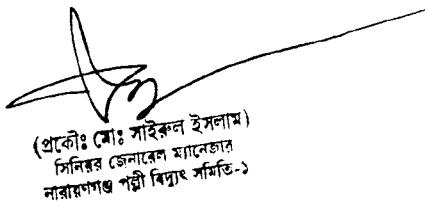 (প্রকৌঃ মোঃ সাইরুল ইসলাম)
সিনিয়র জেনারেল ম্যানেজার
নারায়ণগঞ্জ পল্লী বিদ্যুৎ সমিতি-১